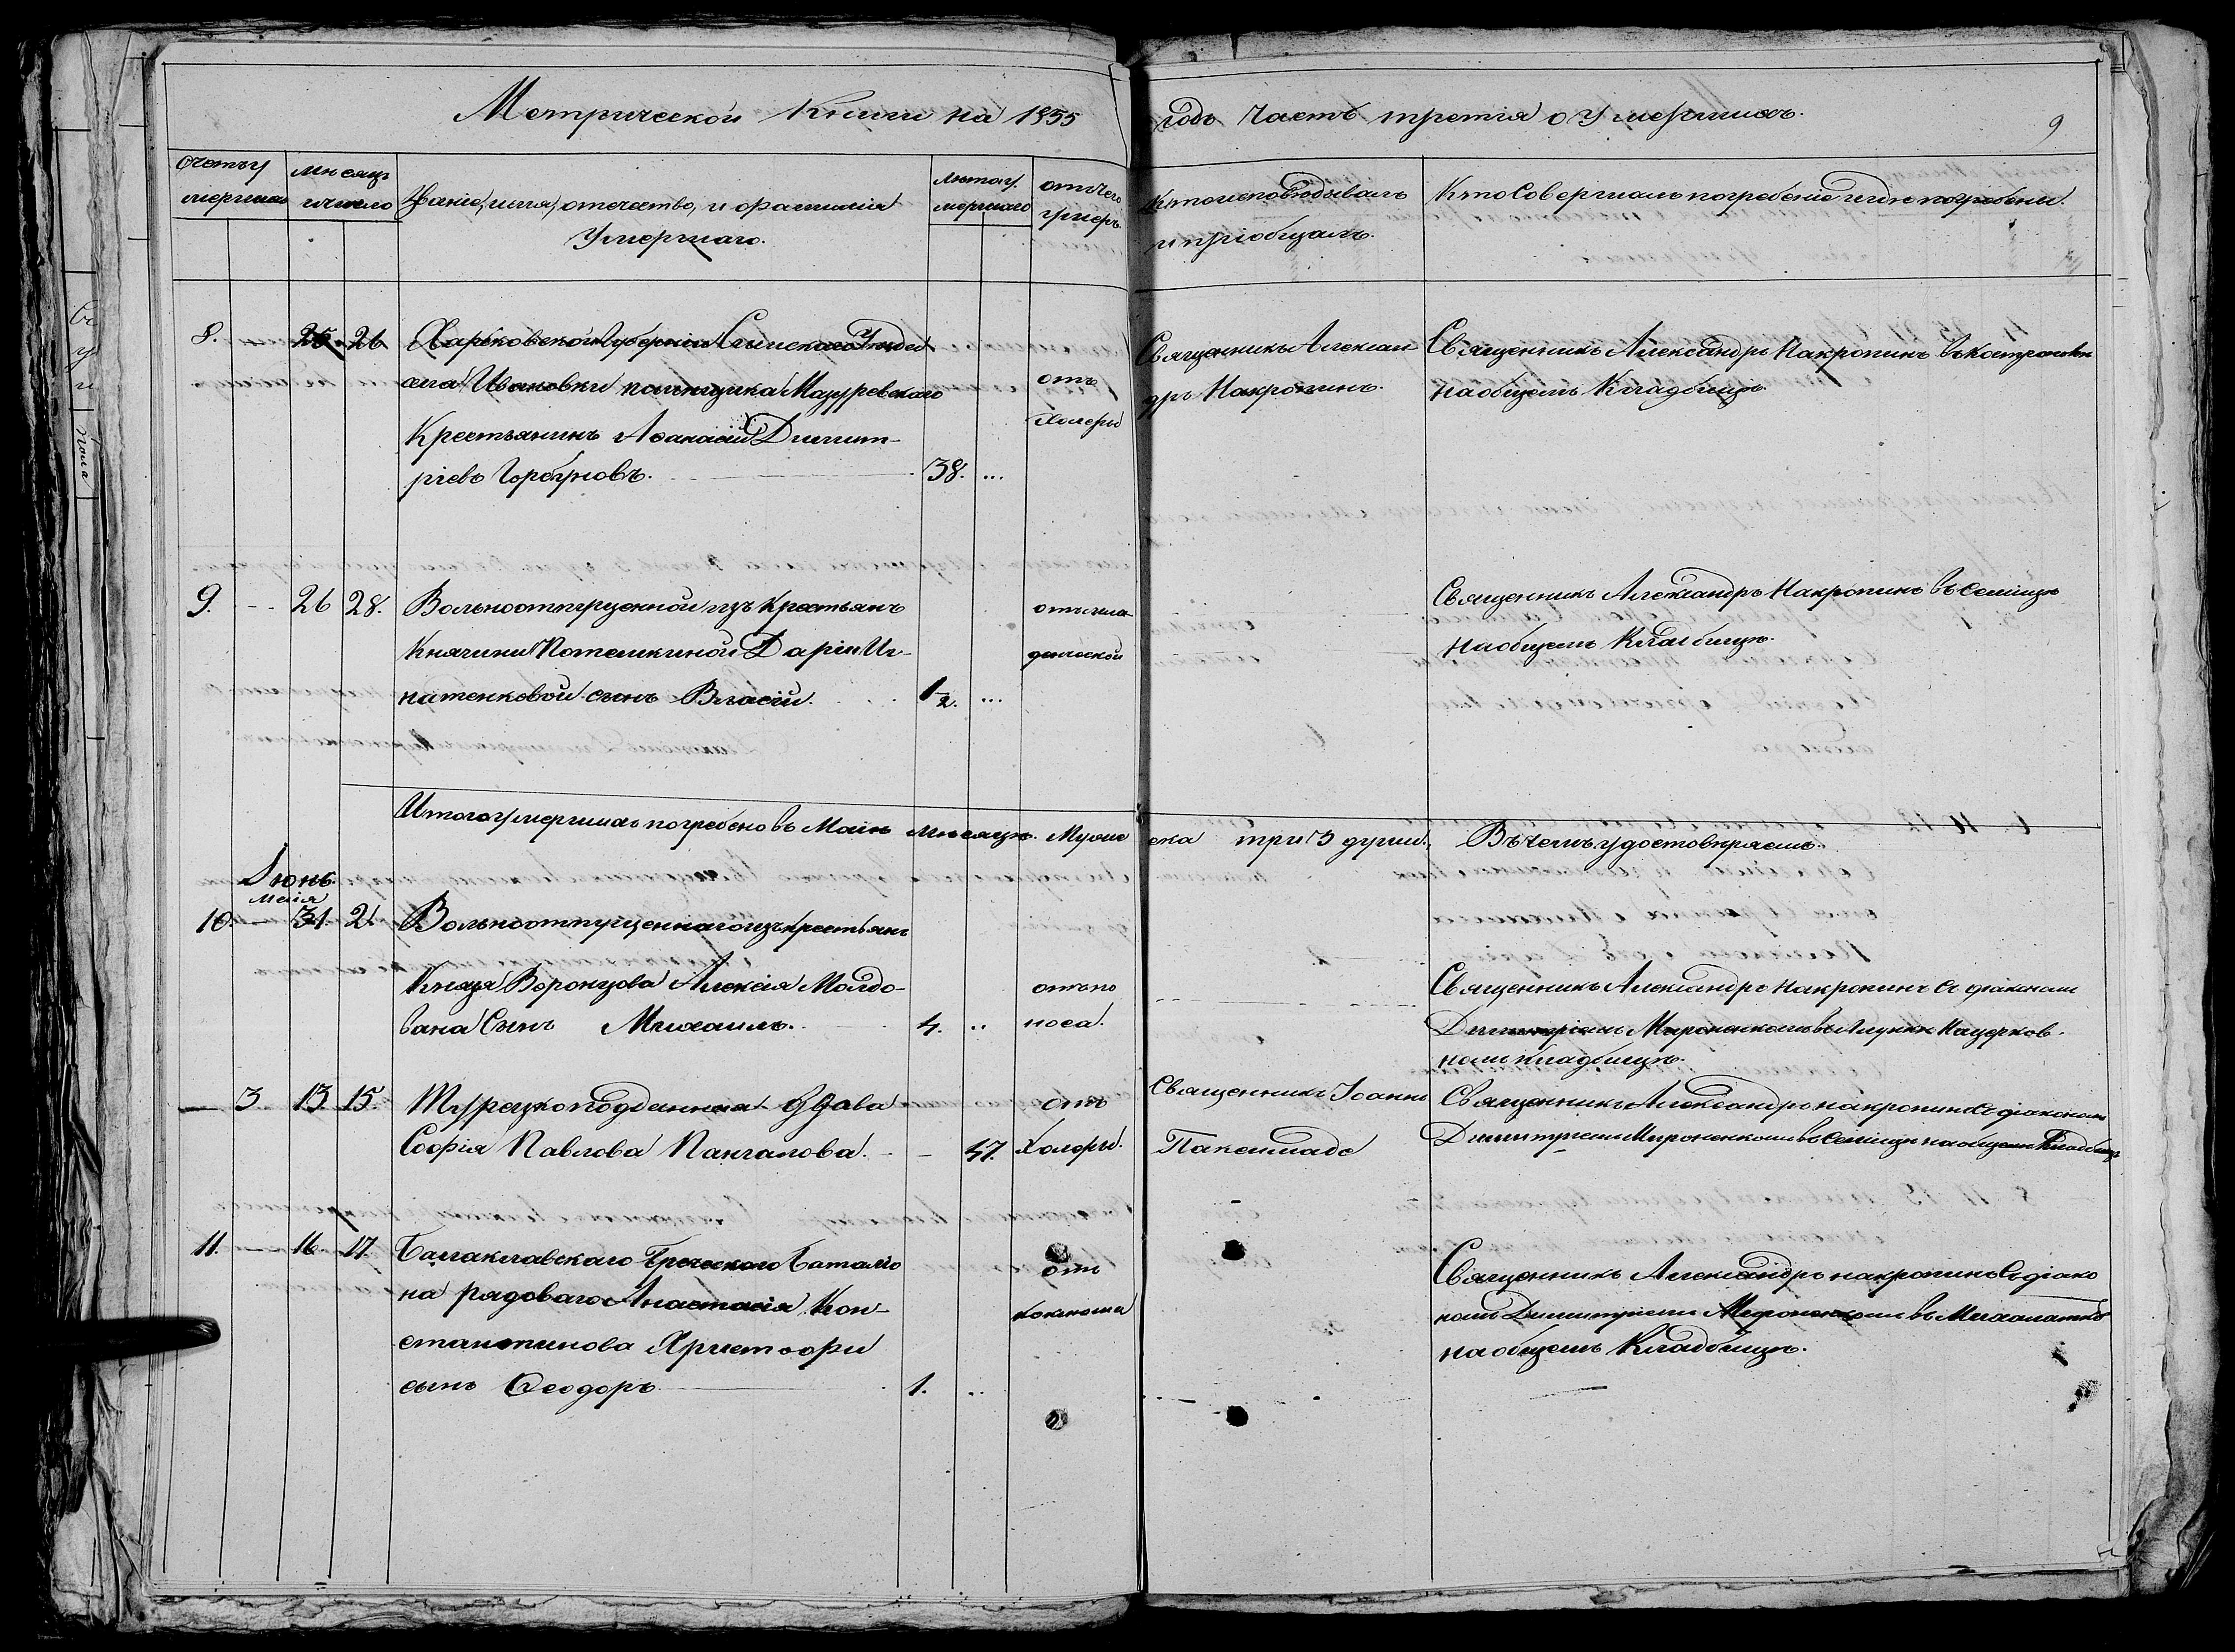 Метрической Книги на 1855 годъ Часть третія о Умершихъ.
9
Счетъ умершихъ
Мѣсяцъ и число
Званіе, имя, отечество, и фамилія
Умершаго.
Лѣта умершаго
Отъ чего умеръ.
Кто исповѣдывалъ
и пріобщалъ.
Кто Совершалъ погребеніе и гдѣ погребены.
8. — 25. 26 Харьковской Губерніи Сумскаго Уѣзда
Ивановки помѣщика Мазуревскаго
Крестьянинъ Аѳанасій Димит-
ріевъ Горбуновъ. 38. ...
отъ
холеры
Священникъ Алексан
дръ Накропинъ.
Священникъ Александръ Накропинъ въ
на общемъ Кладбищѣ.
9. -- 26 28. Вольноотпущенной изъ Крестьянъ
Княгини Потемкиной Даріи Иг-
натенковой сынъ Власій. 1/2. ...
отъ мла-
денческой
Священникъ Александръ Накропинъ въ Семіизѣ
на общемъ Кладбищѣ.
Итого умершихъ погребено въ Маіѣ мѣсяцѣ. Мужеска три 3 души. Въ чемъ удостовѣряемъ.
Іюнь.
маія
10. — 31. 2. Вольноотпущеннаго изъ крестьянъ
Князя Воронцова Алексія Молдо-
вана Сынъ Михаилъ. 4. ..
отъ по
носа.
Священникъ Александръ Накропинъ съ діакономъ
Димитріемъ Мироненкомъ въ Алупкѣ На церков-
номъ кладбищѣ.
— 3 13 15. Турецкоподданная вдова
Софія Павлова Пангалова. - - 47.
отъ
Холеры.
Священникъ Іоаннъ
Паксимаде
Священникъ Александръ накропинъ съ діакономъ
Димитріемъ Мироненкомъ въ Семіизѣ на общемъ Кладбищѣ
11. — 16. 17. Балаклавскаго Греческаго Баталіо
на рядоваго Анастасія Кон-
стантинова Христофи
сынъ Ѳеодоръ 1. ..
отъ
коклюша
Священникъ Александръ накропинъ съ діако
номъ Димитріемъ Мироненкомъ въ
на общемъ Кладбищѣ.